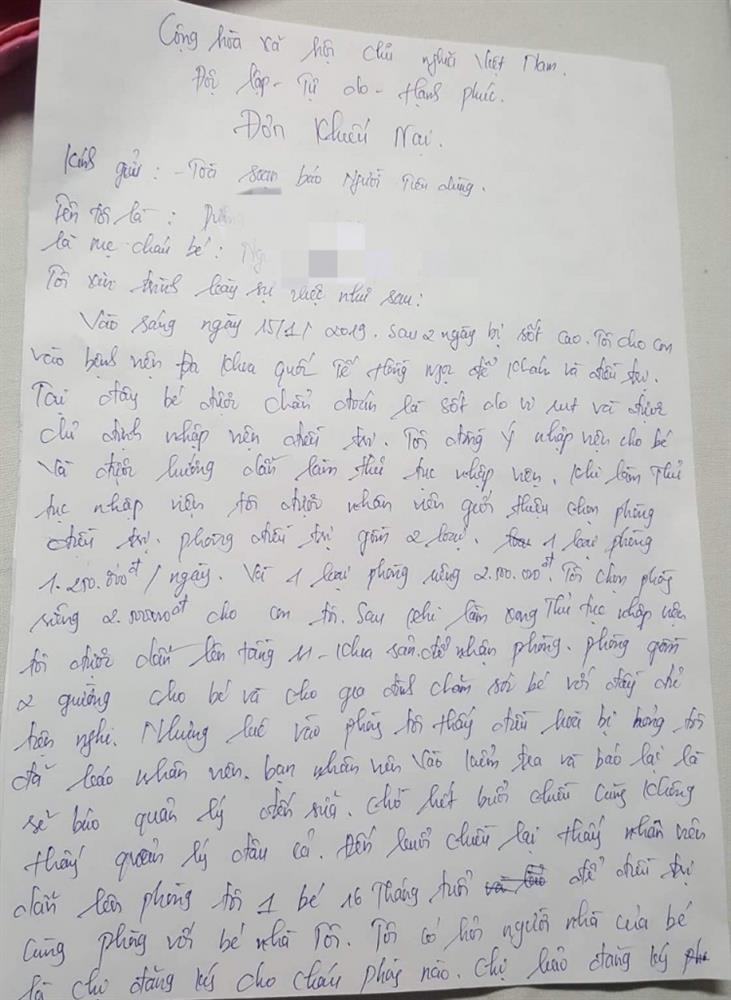 Cộng hòa xã hội chủ nghĩa Việt Nam.
Độc lập - Tự do - Hạnh phúc.
Đơn Khiếu Nại.
Kính gửi : - Toà soạn báo Người Tiêu dùng.
Tên tôi là :
là mẹ cháu bé :
Tôi xin trình bày sự việc như sau :
Vào sáng ngày 15/1/2019. Sau 2 ngày bị sốt cao. Tôi cho con
vào bệnh viện Đa khoa quốc Tế Hồng Ngọc để khám và điều trị.
Tại đây bé được chẩn đoán là sốt do vi rut và được
chỉ định nhập viện điều trị. Tôi đồng ý nhập viện cho bé
Và được hướng dẫn làm thủ tục nhập viện. Khi làm Thủ
tục nhập viện tôi được nhân viên giới thiệu chọn phòng
điều trị. phòng điều trị gồm 2 loại. 1 loại phòng
1.250.000đ / ngày. Và 1 loại phòng riêng 2.000.000đ. Tôi chọn phòng
riêng 2.000000đ cho con tôi. Sau khi làm xong Thủ tục nhập viện
tôi được dẫn lên tầng 11 - khoa sản để nhận phòng. phòng gồm
2 giường cho bé và cho gia đình chăm sóc bé với đầy đủ
tiện nghi. Nhưng lúc vào phòng tôi thấy điều hoà bị hỏng tôi
đã báo nhân viên. bạn nhân viên vào kiểm tra và báo lại là
sẽ báo quản lý đến sửa. chờ hết buổi chiều cũng không
thấy quản lý đâu cả. Đến buổi chiều lại thấy nhân viên
dẫn lên phòng tôi 1 bé 16 Tháng tuổi để điều trị
cùng phòng với bé nhà Tôi. Tôi có hỏi người nhà của bé
là chị đăng ký cho cháu phòng nào. chị bảo đăng ký